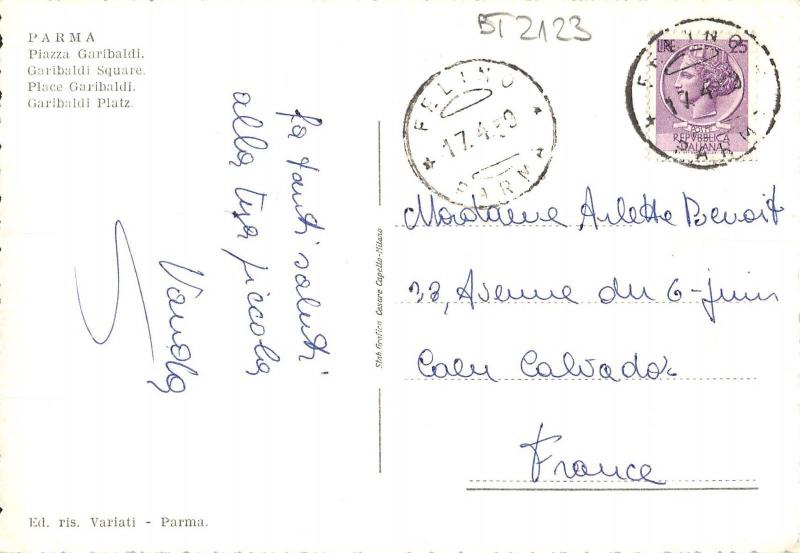 BT2123
PARMA
Piazza Garibaldi.
Garibaldi Square.
Place Garibaldi.
Garibaldi Platz.
fa tanti saluti
alla tua piccola
Vanda
Stab. Grafico Cesare Capello-Milano
FELINO
17.4.59
PARMA
LIRE 25
POSTE
REPVBBLICA
ITALIANA
FELINO
17.4
PARMA
Madame Arlette Benoit
Avenue du 6-juin
Caen Calvados
France
Ed. ris. Variati - Parma.